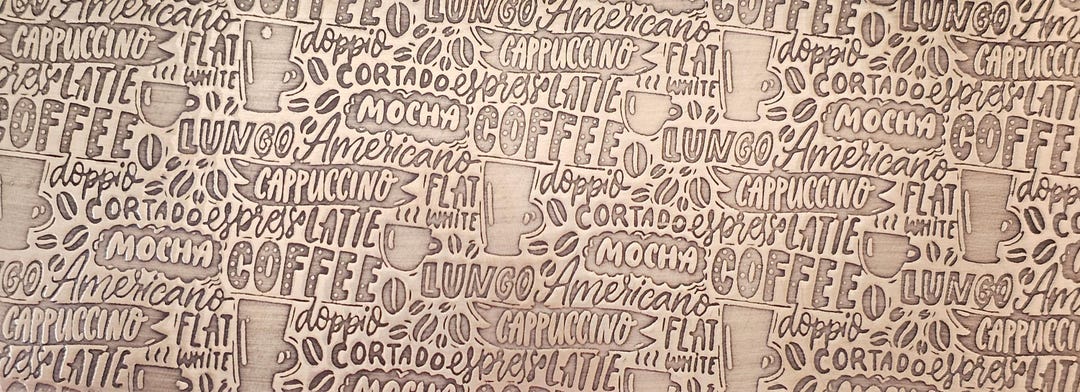 COFFEE LUNGO Americano COFFEE LUNGO Americano
CAPPUCCINO FLAT WHITE doppio CAPPUCCINO FLAT WHITE doppio CAPPUCCINO
espresso LATTE CORTADO espresso LATTE CORTADO espresso LATTE
COFFEE LUNGO MOCHA COFFEE LUNGO MOCHA COFFEE
Americano Americano
doppio CAPPUCCINO FLAT WHITE doppio CAPPUCCINO FLAT WHITE doppio
CORTADO espresso LATTE CORTADO espresso LATTE CORTADO
MOCHA COFFEE LUNGO MOCHA COFFEE LUNGO
Americano Americano
CAPPUCCINO FLAT WHITE doppio CAPPUCCINO FLAT WHITE doppio CAPPUCCINO
espresso LATTE CORTADO espresso LATTE CORTADO espresso LATTE
MOCHA COFFEE MOCHA COFFEE